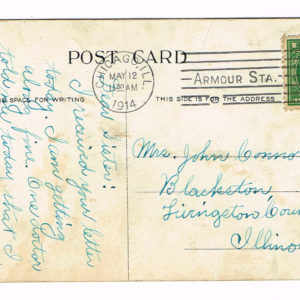 POST CARD
CHICAGO, ILL.
MAY 12
1130 AM
1914
ARMOUR STA.
SPACE FOR WRITING
THIS SIDE IS FOR THE ADDRESS
Dear Sister:
I received your letter
today. I am getting
along fine. One doctor
told me today that I
Mrs. John Connor
Blackston,
Livingston Coun
Illinois